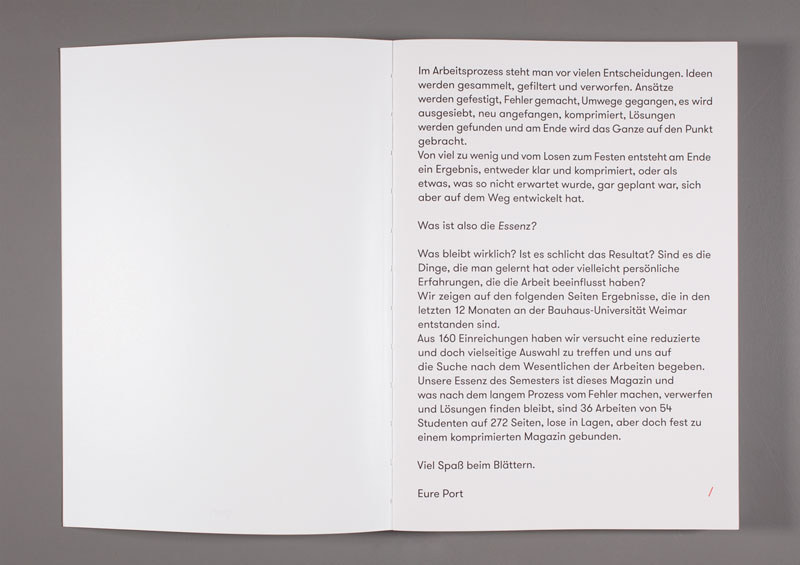 Im Arbeitsprozess steht man vor vielen Entscheidungen. Ideen
werden gesammelt, gefiltert und verworfen. Ansätze
werden gefestigt, Fehler gemacht, Umwege gegangen, es wird
ausgesiebt, neu angefangen, komprimiert, Lösungen
werden gefunden und am Ende wird das Ganze auf den Punkt
gebracht.
Von viel zu wenig und vom Losen zum Festen entsteht am Ende
ein Ergebnis, entweder klar und komprimiert, oder als
etwas, was so nicht erwartet wurde, gar geplant war, sich
aber auf dem Weg entwickelt hat.
Was ist also die Essenz?
Was bleibt wirklich? Ist es schlicht das Resultat? Sind es die
Dinge, die man gelernt hat oder vielleicht persönliche
Erfahrungen, die die Arbeit beeinflusst haben?
Wir zeigen auf den folgenden Seiten Ergebnisse, die in den
letzten 12 Monaten an der Bauhaus-Universität Weimar
entstanden sind.
Aus 160 Einreichungen haben wir versucht eine reduzierte
und doch vielseitige Auswahl zu treffen und uns auf
die Suche nach dem Wesentlichen der Arbeiten begeben.
Unsere Essenz des Semesters ist dieses Magazin und
was nach dem langem Prozess vom Fehler machen, verwerfen
und Lösungen finden bleibt, sind 36 Arbeiten von 54
Studenten auf 272 Seiten, lose in Lagen, aber doch fest zu
einem komprimierten Magazin gebunden.
Viel Spaß beim Blättern.
Eure Port /